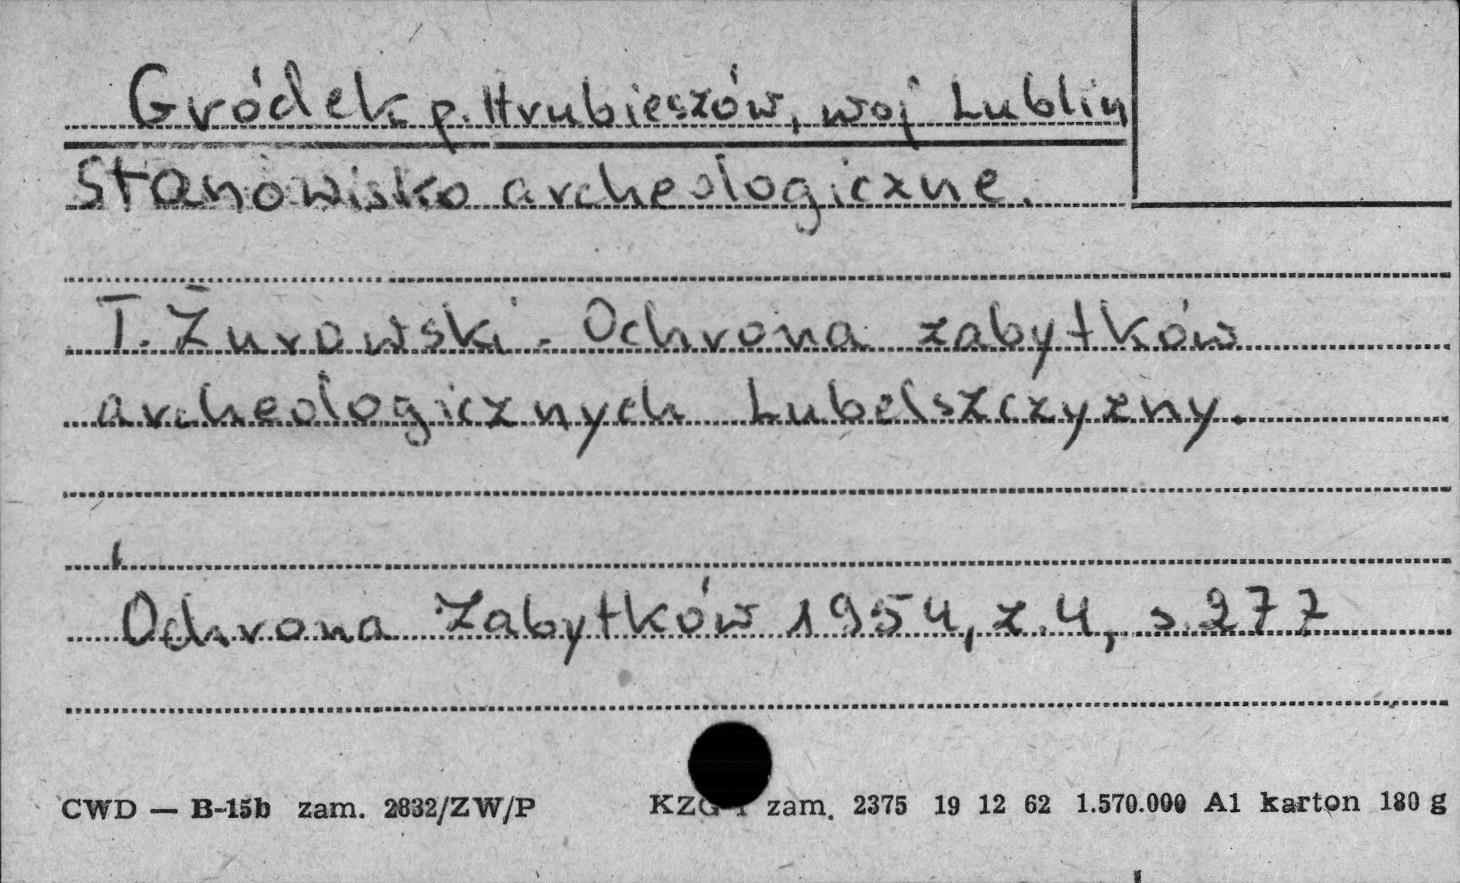 Gródek p. Hrubieszów, woj Lublin
Stanowisko archeologiczne.
T. Żurowski - Ochrona zabytków
archeologicznych Lubelszczyzny.
Ochrona Zabytków 1954, z. 4, s. 277
CWD — B-15b zam. 2832/ZW/P KZG zam. 2375 19 12 62 1.570.000 A1 karton 180 g